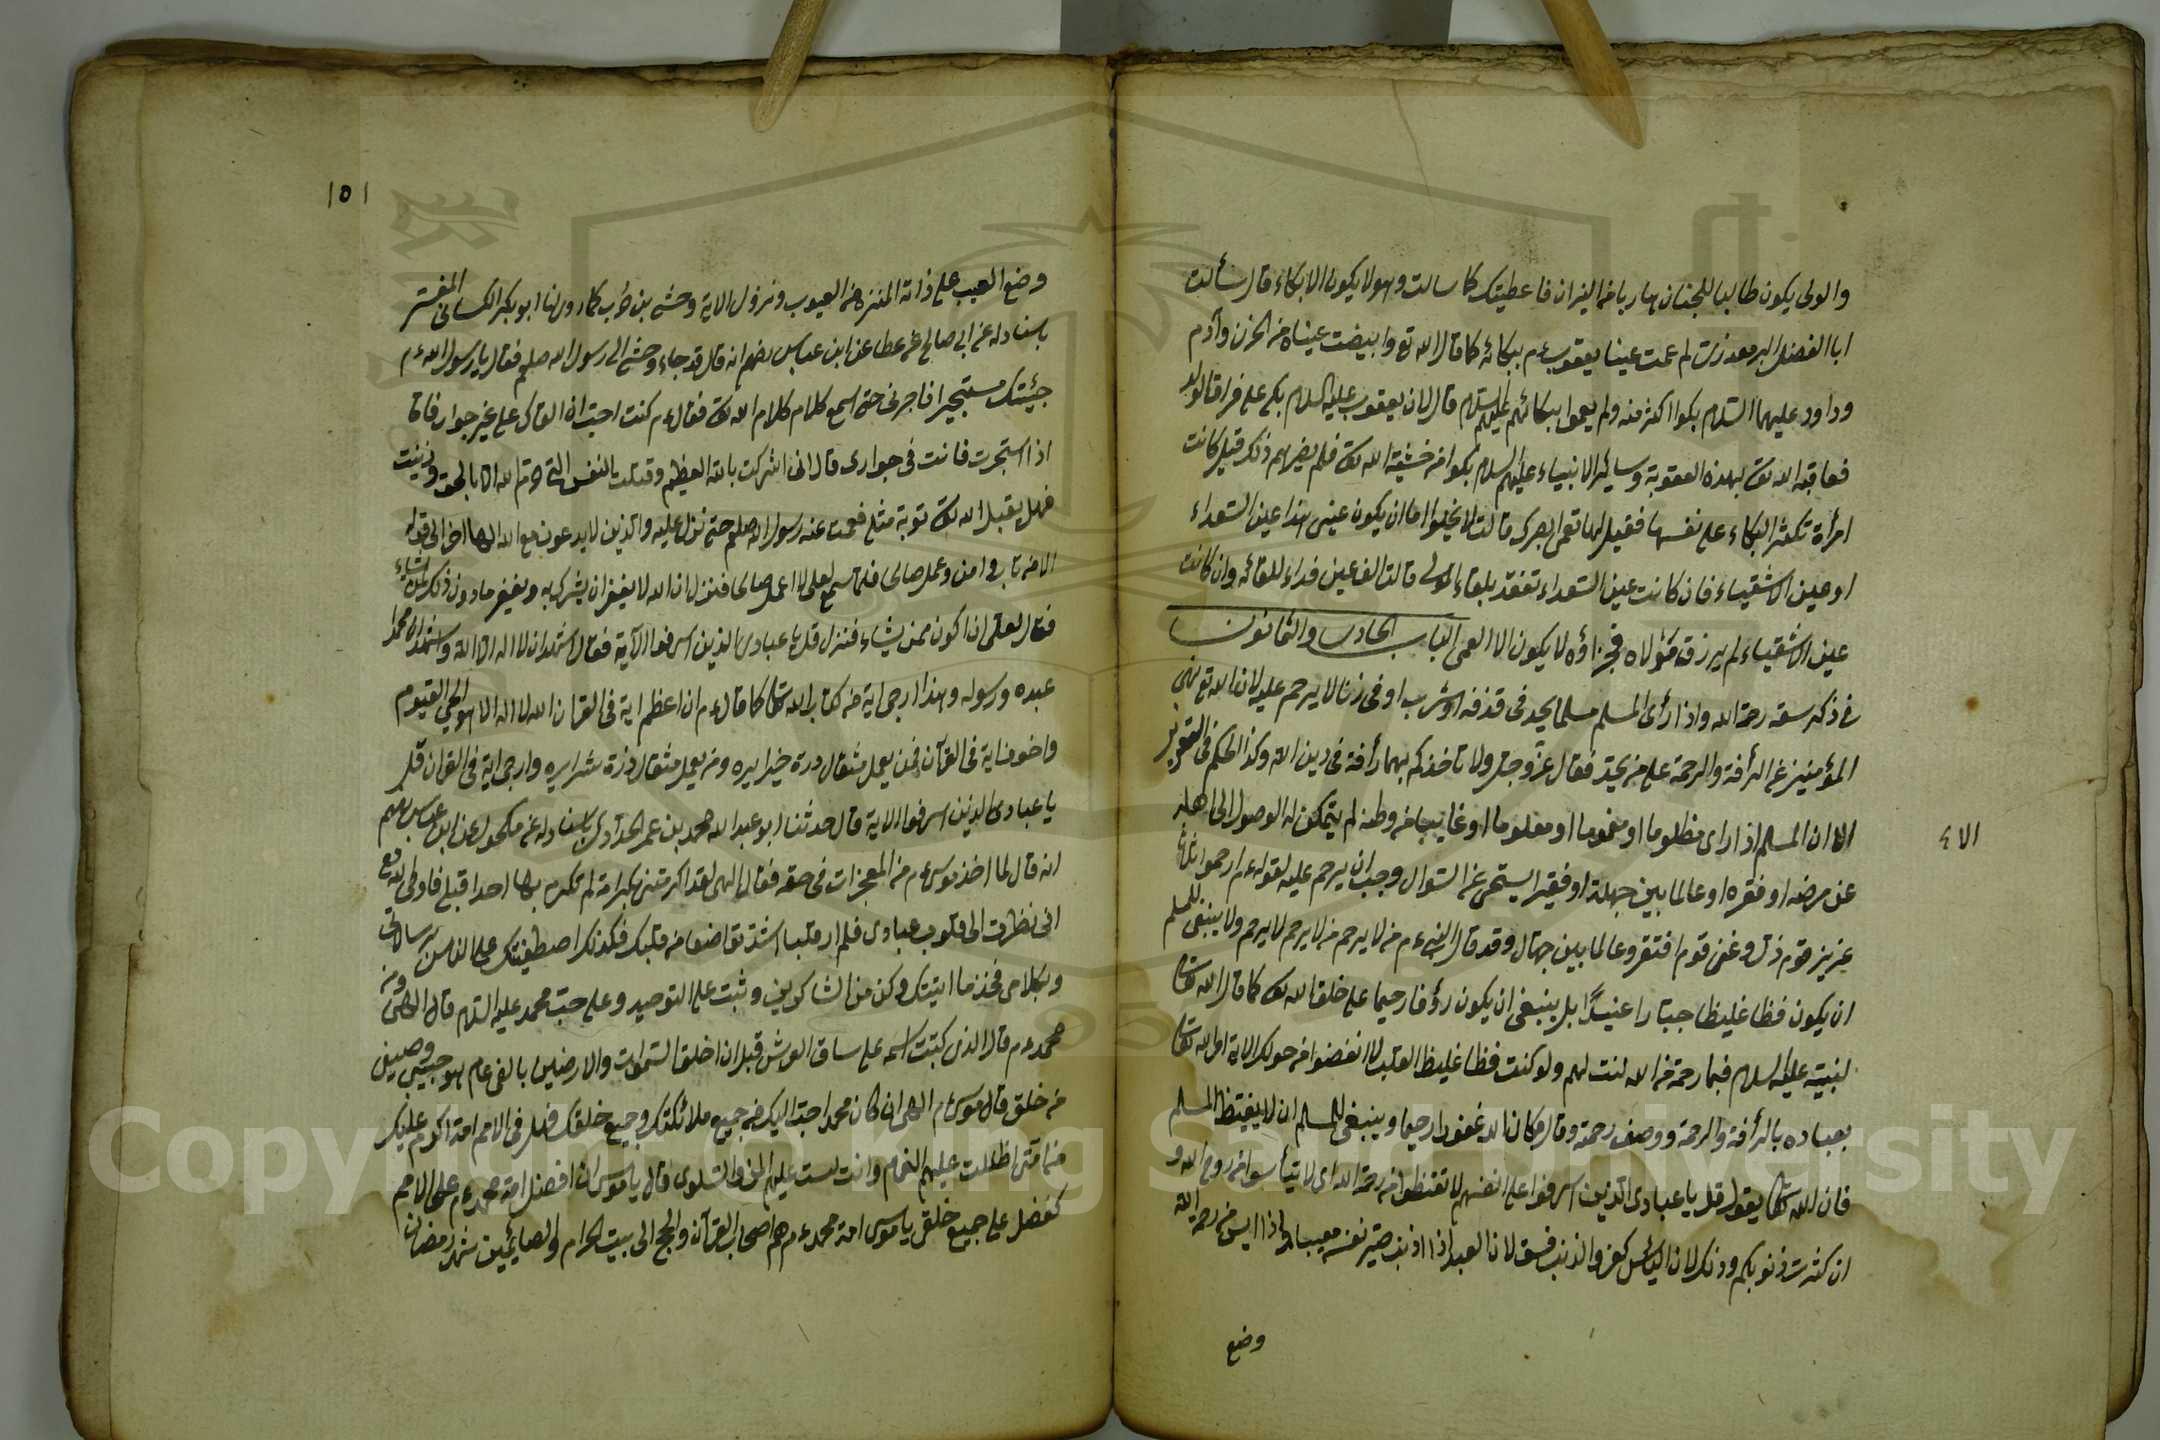 والولى يكون طالبا للجنان هاربا من النيران فاعطيتك كما سالت وهو لا يكون الا بكاء قال سألت
ابا الفضل البرمعدزى لم عمت عينا يعقوب ءم ببكائه كما قال الله تع وابيضت عيناه من الحزن وآدم
وداود عليهما السلام بكوا اكثر منه ولم يعموا ببكائهم عليهم السلام قال لان يعقوب عليه السلام بكى على فراق الولد
فعاقبه الله تعا بهذه العقوبة وسائر الانبياء عليهم السلام بكوا من خشية الله تعا فلم يضرهم ذلك قيل كانت
امرأة تكثر البكاء على نفسها فقيل لها تعمى البصرك قالت لا يخلوا اما ان يكون عينى هذا عين السعداء
او عين الاشقياء فان كانت عين السعداء تفقد بلقاء المولى قالت الف عين فداء للقائه وان كانت
عين الاشقياء لم يرزق مولاه فجزاؤه لا يكون الا العمى الباب الحادى والثمانون
فى ذكر سعة رحمة الله واذا رأى المسلم مسلما يحد فى قذفه او شرب او فى زنا لا يرحم عليه لان الله تع نهى
المؤمنين عن الرأفة والرحمة على من يحد فقال عز وجل ولا تاخذكم بهما رأفة فى دين الله وكذا الحكم فى التعزير
الا ان المسلم اذا راى مظلوما او مغموما او مغلوما او غايبا من وطنه لم يتمكن له الوصول الى اهله
الا ء
عن مرضه او فقره او عالما بين جهلة او فقيرا يستحى عن السوال وجب ان يرحم عليه لقوله ءم ارحموا ثلاثا
عزيز قوم ذل وغنى قوم افتقر وعالما بين جهال وقد قال النبى ءم من لا يرحم من لا يرحم لا يرحم ولا ينبغى للمسلم
ان يكون فظا غليظا جبارا عنيدا بل ينبغى ان يكون رؤفا رحيما على خلق الله تعا كما قال الله تعا
لنبيه عليه السلام فبما رحمة من الله لنت لهم ولو كنت فظا غليظ القلب لا انفضوا من حولك الاية امر الله تعا
بعباده بالرأفة والرحمة ووصف رحمته وقال وكان الله غفورا رحيما وينبغى للمسلم ان لا يقنط المسلم
فان الله تعا يقول قل يا عبادى الذين اسرفوا على انفسهم لا تقنطوا من رحمة الله اى لا تيأسوا من روح الله و
ان كثرت ذنوبكم وذلك لان الياس كفر والذنب فسق لان العبد اذا اذنب صير نفسه معيبا واذا ايس من رحمة الله
وضع
١٥١
وضع العيب على ذاته المنزه من العيوب ونزول الاية وحشى بن حرب كما روى لنا ابو بكر الكسائى المفسر
باسناد له عن ابى صالح عن عطا عن ابن عباس رضهم انه قال قد جاء وحشى الى رسول الله صلعم فقال يا رسول الله ءم
جئيتك مستجيرا فاجرنى حتى اسمع كلام كلام الله تعا فقال ءم كنت احب ان القاك على غير جوار فاما
اذا استجرت فانت فى جوارى قال انى اشركت بالله العظيم وقتلت النفس التى حرم الله الا بالحق وزنيت
فهل يقبل الله تعا توبة مثلى فصمت عنه رسول الله صلعم حتى نزل عليه والذين لا يدعون مع الله الها اخر الى قوله
الا من تاب وامن وعمل صالحا فلما سمع لعلى لا اعمل صالحا فنزل ان الله لا يغفر ان يشرك به ويغفر ما دون ذلك لمن يشاء
فقال لعلى ان اكون ممن يشاء فنزل قل يا عبادى الذين اسرفوا الآية فقال اشهد ان لا اله الا الله واشهد ان محمدا
عبده ورسوله وهذا ارجى اية من كتاب الله تعا كما قال ءم ان اعظم اية فى القران الله لا اله الا هو الحى القيوم
واخوف اية فى القرآن فمن يعمل مثقال ذرة خيرا يره ومن يعمل مثقال ذرة شرا يره وارجى اية فى القران قل
يا عبادى الذين اسرفوا الاية قال حدثنا ابو عبد الله محمد بن عمر الحدادى باسناد له عن مكحول عن ابن عباس رضهم
انه قال لما اخذ موسى ءم من المعجزات فى حقه فقال الهى لقد اكرمتنى بكرامة لم تكرم بها احدا قبلى فاوحى الله تع
انى نظرت الى قلوب عبادى فلم ار قلبا اشد تواضعا من قلبك فكذلك اصطفيتك على الناس برسالاتى
وبكلامى فخذ ما اتيتك وكن من الشاكرين وثبت على التوحيد وعلى حب محمد عليه السلام قال الهى ومن
محمد ءم قال الذى كتبت اسمه على ساق العرش قبل ان اخلق السموات والارضين بالفى عام هو حبيبى وصفيى
من خلقى قال موسى ءم الهى ان كان محمد احب اليك من جميع ملائكتك وجميع خلقك فهل فى الامم امة اكرم عليك
من امتى اظللت عليهم الغمام وانزلت عليهم المن والسلوى قال يا موسى ان افضل امة محمد ءم على الامم
كفضلى على جميع خلقى يا موسى امة محمد ءم هم اصحاب القرآن والحج الى بيت الحرام والصائمين شهر رمضان
Copyright © King Saud University